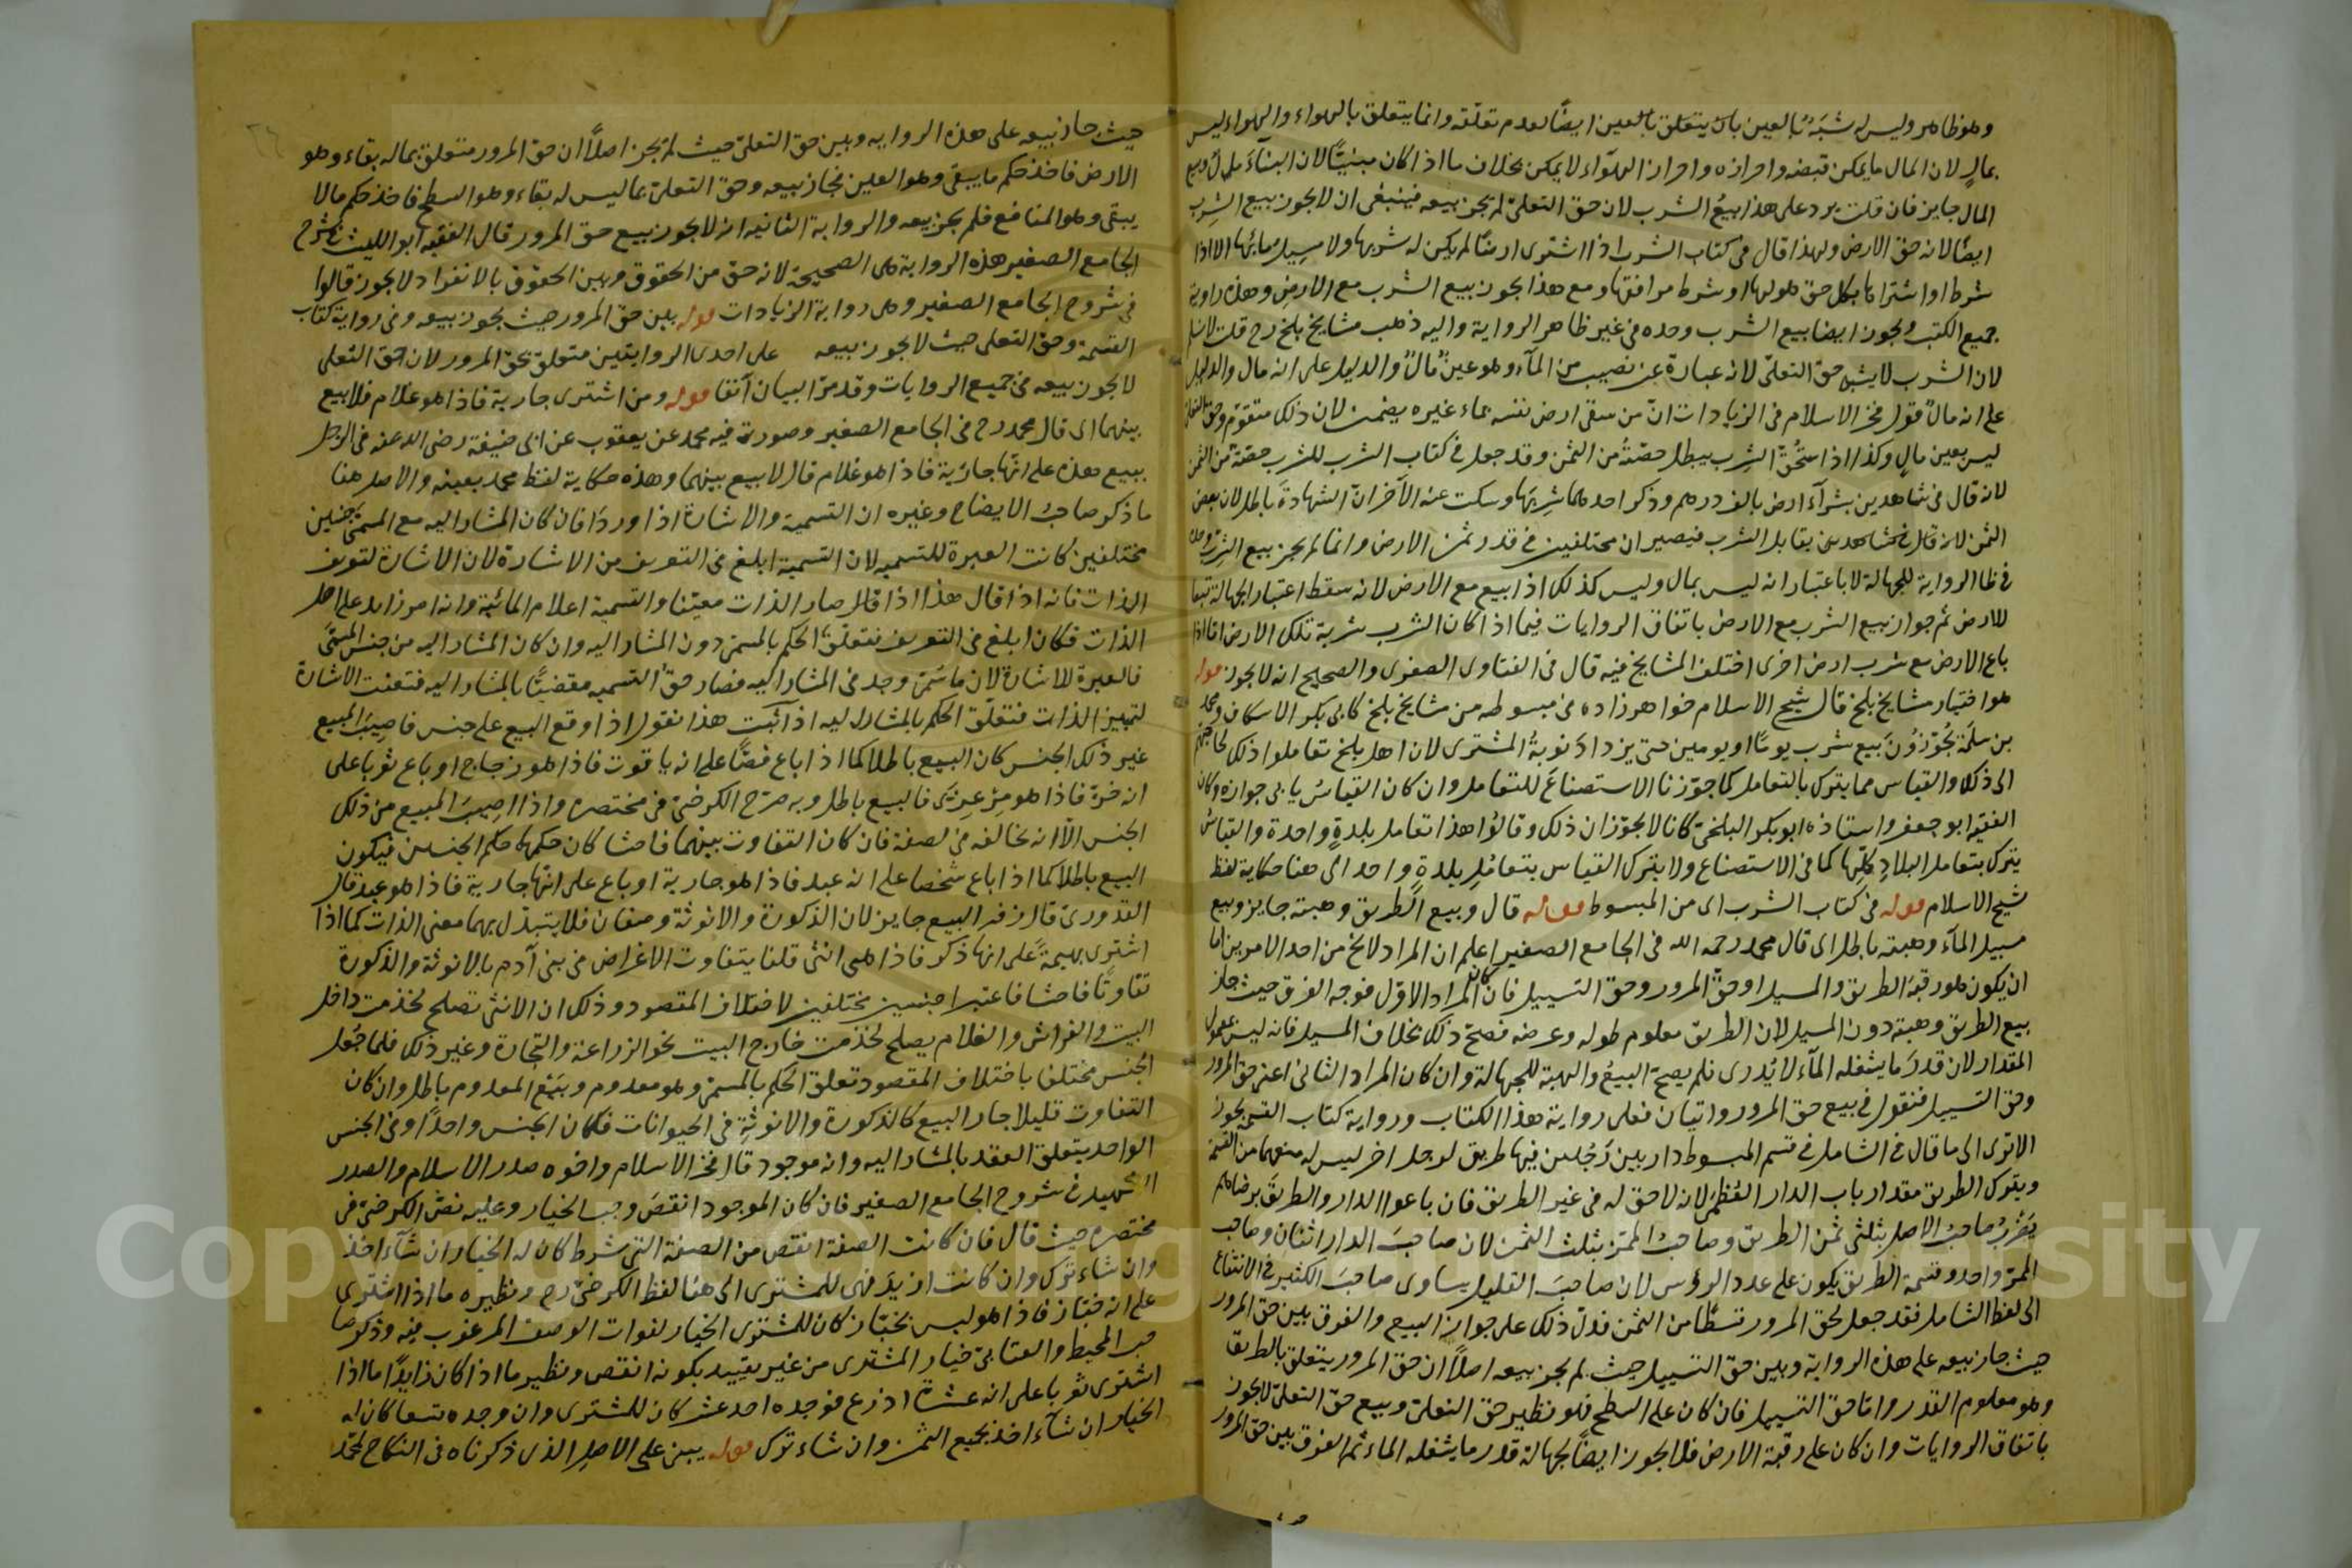 وهو ظاهر وليس له شبَهٌ بالعين بان يتعلق بالعين ايضًا لعدم تعلّقه وانما يتعلق بالهواء والهواء ليس
بمالٍ لان المال ما يمكن قبضه واحرازه واحراز الهوآء لا يمكن بخلاف ما اذا كان مبنيًّا لان البنآء مال وبيع
المال جايز فان قلت يرد على هذا بيعُ الشرب لان حق التعلىّ لم يجز بيعه فينبغى ان لا يجوز بيع الشِرب
ايضًا لانه حق الارض ولهذا قال فى كتاب الشرب اذا اشترى ارضًا لم يكن له شربها ولا مسيل مائها الا اذا
شرط او اشتراها بكل حق هو لها او شرط مرافقها ومع هذا يجوز بيع الشرب مع الارض وهذه رواية
جميع الكتب ويجوز ايضا بيع الشرب وحده فى غير ظاهر الرواية واليه ذهب مشايخ بلخ رح قلت لا نسلم
لان الشرب لا يشبه حق التعلىّ لانه عبارة عن نصيب من المآء وهو عينٌ مالٌ والدليل على انه مال والدليل
على انه مالٌ قول فخر الاسلام فى الزيادات انّ من سقى ارض نفسه بماء غيره يضمن لان ذلك متقوّم وحق التعلى
ليس بعين مالٍ وكذا اذا استُحقّ الشِرب يبطل حصّتهُ من الثمن وقد جعل فى كتاب الشرب للشرب حصّة من الثمن
لانه قال فى شاهدين بشرآء ارض بالف درهم وذكر احدهما شِربَها وسكت عنه الآخر انّ الشهادةَ باطلة لان بعض
الثمن يقابل الشرب فيصيران مختلفين فى قدر ثمن الارض وانما لم يجز بيع الشرب وحده
فى ظا الرواية للجهالة لا باعتبار انه ليس بمال وليس كذلك اذا بيع مع الارض لانه سقط اعتبار الجهالة تبعا
للارض ثم جواز بيع الشرب مع الارض باتفاق الروايات فيما اذا كان الشرب شربة تلك الارض امّا اذا
باع الارض مع شرب ارض اخرى اختلف المشايخ فيه قال فى الفتاوى الصغرى والصحيح انه لا يجوز قوله
هو اختيار مشايخ بلخ قال شيخ الاسلام خواهرزاده فى مبسوطه من مشايخ بلخ كابى بكر الاسكاف ومحمد
بن سلَمة يُجوّزوُن بَيع شرب يومًا او يومين حتى يزدادَ نوبةُ المشترى لان اهل بلخ تعاملوا ذلك لحاجتهم
الى ذلك والقياس مما يترك بالتعامل كما جوّزنا الاستصناعَ للتعامل وان كان القياسُ يابى جوازه وكان
الفقيه ابو جعفر واستاذه ابو بكر البلخىّ كانا لا يجوّزان ذلك وقالوُا هذا تعامل بلدةٍ واحدة والقياس
يترك بتعامل البلادِ كلّها كما فى الاستصناع ولا يترك القياس بتعامُلِ بلدةٍ واحد الى هنا حكاية لفظ
شيخ الاسلام قوله فى كتاب الشرب اى من المبسوط قوله قال وبيع الطريق وهبته جايز وبيع
مسيل المآء وهبته باطل اى قال محمد رحمه الله فى الجامع الصغير اعلم ان المراد لا يخ من احد الامرين امّا
ان يكون هو رقبة الطريق والمسيل او حقّ المرور وحق التسييل فان كان المراد الاوّل فوجه الفرق حيث جاز
بيع الطريق وهبته دون المسيل لان الطريق معلوم طوله وعرضه فصحّ ذلك بخلاف المسيل فانه ليس بمعلوم
المقدار لان قدرَ ما يشغله المآء لا يُدرى فلم يصحّ البيعُ والهبة للجهالة وان كان المراد الثانى اعنى حق المرور
وحق التسييل فنقول فى بيع حق المرور روايتان فعلى رواية هذا الكتاب ورواية كتاب القسمة يجوز
الا ترى الى ما قال فى الشامل فى قسم المبسوط دار بين رَجُلين فيها طريق لرجل اخر ليس له منعهما من القسمة
ويترك الطريق مقدار باب الدار العُظمىَ لانه لا حق له فى غير الطريق فان باعوا الدار والطريقَ برضاهم
يَضْربُ صاحبُ الاصل بثلثى ثمن الطريق وصاحبُ الممرّ بثلث الثمن لان صاحبَ الدار اثنان وصاحب
الممرّ واحد وقسمة الطريق يكون على عدد الرؤس لان صاحبَ القليل يساوى صاحبَ الكثير فى الانتفاع
الى لفظ الشامل فقد جعل لحق المرور قسطًا من الثمن فدلّ ذلك على جواز البيع والفرق بين حق المرور
حيث جاز بيعه على هذه الرواية وبين حق التسييل حيث لم يجز بيعه اصلًا ان حق المرور يتعلق بالطريق
وهو معلوم القدر وامّا حق التسييل فان كان على السطح فهو نظير حق التعلىّ وبيع حق التعلىّ لا يجوز
باتفاق الروايات وان كان على رقبة الارض فلا يجوز ايضًا لجهالة قدر ما يشغله الماء ثم الفرق بين حق المرور
حيث جاز بيعه على هذه الروايه وبين حق التعلىّ حيث لم يجز اصلًا ان حق المرور متعلق بماله بقاء وهو
الارض فاخذ حكم ما يبقى وهو العين فجاز بيعه وحق التعلىّ بما ليس له بقاء وهو السطح فاخذ حكم ما لا
يبقى وهو المنافع فلم يجز بيعه والرواية الثانيه انه لا يجوز بيع حق المرور قال الفقيه ابو الليث فى شرح
الجامع الصغير هذه الرواية هى الصحيحة لانه حق من الحقوق وبيع الحقوق بالانفراد لا يجوز قالوا
فى شروح الجامع الصغير وهى رواية الزيادات قوله بين حق المرور حيث يجوز بيعه وفى رواية كتاب
القسمة وحق التعلى حيث لا يجوز بيعه على احدى الروايتين متعلق بحق المرور لان حق التعلى
لا يجوز بيعه فى جميع الروايات وقد مرّ البيان آنفا قوله ومن اشترى جارية فاذا هو غلام فلا بيع
بينهما اى قال محمد رح فى الجامع الصغير وصورته فيه محمد عن يعقوب عن ابى حنيفة رضى الله عنه فى الرجل
يبيع هذه على انّها جاريَة فاذا هو غلام قال لا بيع بينهما وهذه حكاية لفظ محمد بعينه والاصل هنا
ما ذكر صاحبُ الايضاح وغيره ان التسمية والاشارة اذا وردَا فان كان المشار اليه مع المسمّى جنسين
مختلفين كانت العبرة للتسميه لان التسمية ابلغ فى التعريف من الاشارة لان الاشارة لتعريف
الذات فانه اذا قال هذا اذا قال صار الذات معيّنا والتسمية اعلام المائية وانه امر زايد على اصل
الذات فكان ابلغ فى التعريف فتعلّق الحكم بالمسمّى دون المشار اليه وان كان المشار اليه من جنس المسمّى
فالعبرة للاشارة لان ما سُمّى وجد فى المشار اليه فصار حقّ التسميه مقضيًّا بالمشار اليه فتعينت الاشارة
لتمييز الذات فتعلّق الحكم بالمشار اليه اذا ثبت هذا نقول اذا وقع البيع على جنس فاصِيَبَ المبيع
غير ذلك الجنس كان البيع باطلا كما اذا باع فصًّا على انه ياقوت فاذا هو زجاج او باع ثوبا على
انه خزّ فاذا هو مِرْعِزّى فالبيع باطل وبه صرّح الكرخىّ فى مختصره واذا اصِيبَ المبيع من ذلك
الجنس الّا انه يخالفه فى الصفة فان كان التفاوت بينهما فاحشا كان حكمها حكم الجنسين فيكون
البيع باطلا كما اذا باع شخصا على انه عبد فاذا هو جارية او باع على انّها جارية فاذا هو عبد قال
القدورىّ قال زفر البيع جايز لان الذكورة والانوثة وصفان فلا يتبدّل بهما معنى الذات كما اذا
اشترى بهيمةً على انها ذكر فاذا هى انثى قلنا يتفاوت الاغراض فى بنى آدم بالانوثة والذكورة
تفاوتًا فاحشا فاعتبرا جنسين مختلفين لاختلاف المقصود وذلك ان الانثى تصلح لخدمت داخل
البيت والفراش والغلام يصلح لخدمت خارج البيت نحو الزراعة والتجارة وغير ذلك فلما جُعل
الجنس مختلفا باختلاف المقصود تعلق الحكم بالمسمّى وهو معدوم وبَيْعُ المعدوم باطل وان كان
التفاوت قليلا جاز البيع كالذكورة والانوثةِ فى الحيوانات فكان الجنس واحدًا وفى الجنس
الواحد يتعلق العقد بالمشار اليه وانه موجود قال فخر الاسلام واخوه صدر الاسلام والصدر
الشهيد فى شروح الجامع الصغير فان كان الموجود انقصَ وجب الخيار وعليه نصّ الكرخىّ فى
مختصره حيث قال فان كانت الصفة انقص من الصفة التى شرط كان له الخيار ان شآء اخذ
وان شاء ترك وان كانت ازيدَ فهى للمشترى الى هنا لفظ الكرخىّ رح ونظيره ما اذا اشترى
على انه خبّاز فاذا هو ليس بخبّاز كان للمشترى الخيار لفوات الوصف المرغوب فيه وذكر صا
حب المحيط والعتابىّ خيار المشترى من غير تقييد بكونه انقص ونظير ما اذا كان زايدًا ما اذا
اشترى ثوبا على انه عشرة اذرع فوجده احد عشر كان للمشترى وان وجده تسعا كان له
الخيار ان شآء اخذ بجميع الثمن وان شاء ترك قوله يبتنى على الاصل الذى ذكرناه فى النكاح لمحمّد
Copyright © King Saud University